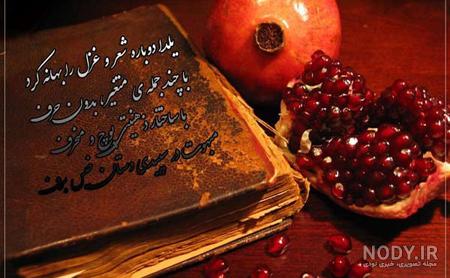 یلدا دوباره شعر و غزل را بهانه کرد
با چند جمله‌ی متغیر، بدون حرف
با ساختار ذهنیتی پوچ و منحرف
مبهوت در سپیدی دستان برف
NODY.IR
مجله تصویری، خبری نودی